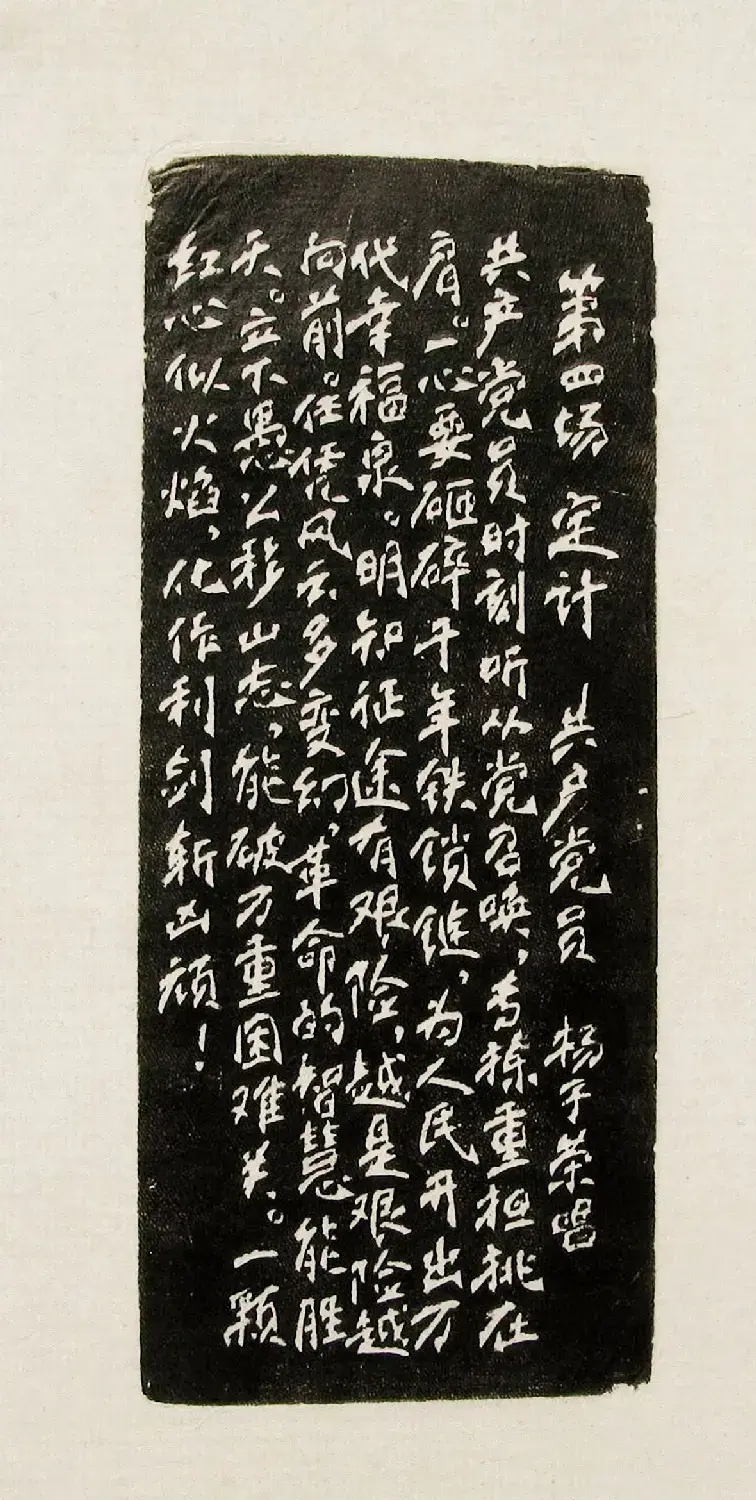 第四场 定计 共产党员 杨子荣唱
共产党员时刻听从党召唤，专拣重担挑在
肩。一心要砸碎千年铁锁链，为人民开出万
代幸福泉。明知征途有艰险，越是艰险越
向前。任凭风云多变幻，革命的智慧能胜
天。立下愚公移山志，能破万重困难关。一颗
红心似火焰，化作利剑斩凶顽！